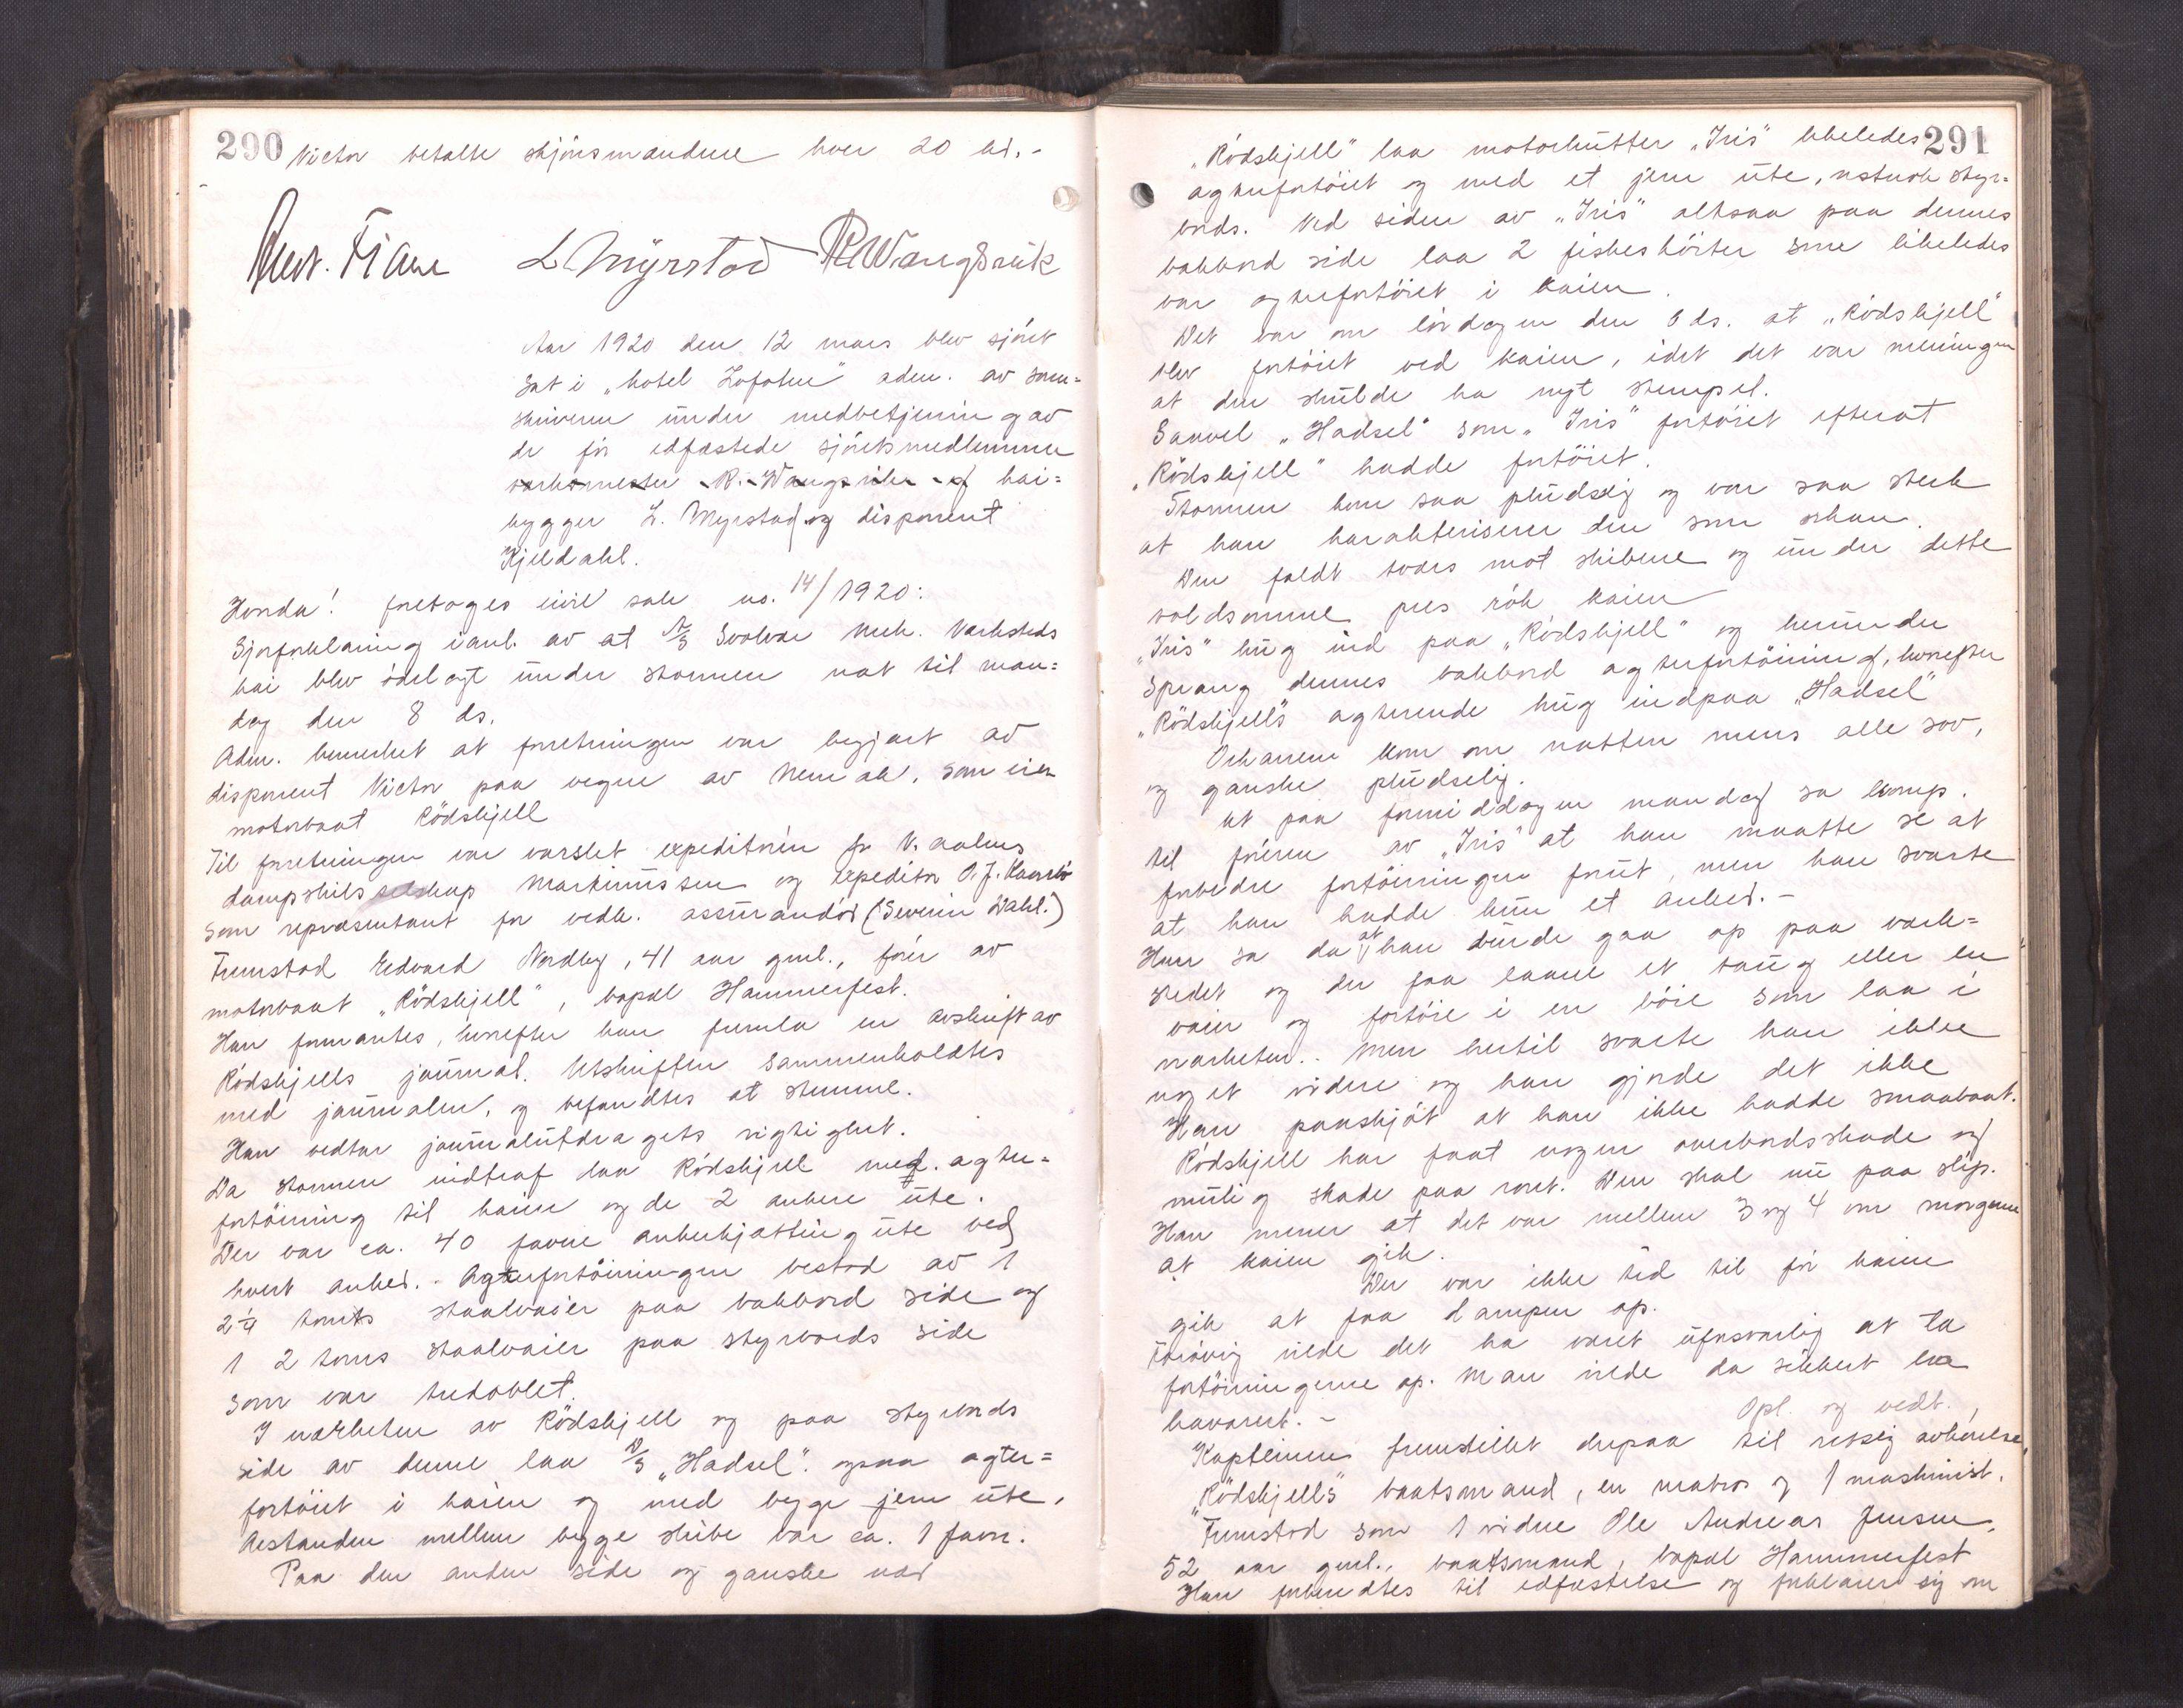 290
Victor betalte skjönsmændene hver 20 kr. -
L Myrstad R Wangsvik
Aar 1920 den 12 mars blev sjöret
sat i „hotel Lofoten" adm. av soren=
skriveren under medbetjening av
de för edfæstede sjöretsmedlemmer
verksmester R. Wangsvik og kai=
bygger L. Myrstad og disponent
Kjeldahl.
Hvorda! foretoges civil sak no. 14/1920:
Sjøforklaring i anl. av at A/S Svolvær mek. Verksteds
kai blev ödelagt under stormen nat til man=
dag den 8 ds.
Adm. bemerket at forretningen var begjært av
disponent Victor paa vegne av som eier
motorbaat Rödskjell
Til forretningen var varslet expeditören for V. aalens
dampskibsselskap Martinussen og expeditör O. J. Kaarbö
som repræsentant for vedk. assurandör (Severin Dahl.)
Fremstod Edvard Nordby, 41 aar gml., förer av
motorbaat „Rödskjell", bopæl Hammerfest.
Han formantes, hvorefter han fremla en avskrift av
Rödskjells journal. Utskriften sammenholdtes
med journalen, og befandtes at stemme.
Han vedtar journalutdragets rigtighet.
Da stormen indtraf laa Rödskjell med agter=
fortöining til kaien og de 2 ankere ute.
Der var ca. 40 favne ankerkjætting ute ved
hvert anker. Agterfortöiningen bestod av 1
2 1/4 toms staalvaier paa babbord side og
1 2 toms staalvaier paa styrbords side
som var tredoblet.
I nærheten av Rödskjell og paa styrbords
side av denne laa D/S „Hadsel". ogsaa agter=
fortöiet i kaien og med begge jern ute.
Avstanden mellem begge skibe var ca. 1 favn.
Paa den anden side og ganske nær
291
„Rödskjell" laa motorkutter „Iris" likeledes
agterfortöiet og med et jern ute, styr=
bords. Ved siden av „Iris" altsaa paa dennes
babbord side laa 2 fiskesköiter som likeledes
var agterfortöiet i kaien.
Det var om lördagen den 6 ds. at „Rödskjell"
blev fortöiet ved kaien, idet det var meningen
at den skulde ha nyt stempel.
Saavel „Hadsel" som „Iris" fortöiet efterat
„Rödskjell" hadde fortöiet.
Stormen kom saa pludselig og var saa sterk
at han karakteriserer den som orkan.
Den faldt tvers mot skibene og under dette
voldsomme pres rök kaien
„Iris" hug ind paa „Rödskjell" og herunder
sprang dennes babbord agterfortöining, hvorefter
„Rödskjell's agterende hug indpaa „Hadsel"
Orkanen kom om natten mens alle sov,
og ganske pludselig.
at paa formiddagen mandag sa komp.
til föreren av „Iris" at han maatte se at
forbedre fortöiningen forut, men han svarte
at han hadde kun et anker. -
Han sa da at han burde gaa op paa verk=
stedet og der faa laane et taug eller en
vaier og fortöie i en böie som laa i
nærheten.. Men hertil svarte han ikke
noget videre og han gjorde det ikke
Han paaskjöt at han ikke hadde smaabaat.
Rödskjell har faat nogen overbordsskade og
mulig skade paa roret. Den skal nu paa slip.
Han mener at det var mellem 3 og 4 om morgenen
at kaien gik.
Der var ikke tid til för kaien
gik at faa dampen op.
Forövrig vilde det ha været uforsvarlig at ta
fortöiningerne op. Man vilde da sikkert ha
havarert. -
Opl. og vedt.
Kapteinen fremstillet derpaa til retslig avhörelse
„Rödskjell's" baatsmand, en matros og 1 maskinist.
Fremstod som 1 vidne Ole Andreas Jensen,
52 aar gml., baatsmand, bopæl Hammerfest
Han formantes til edfæstelse og forklarer sig om